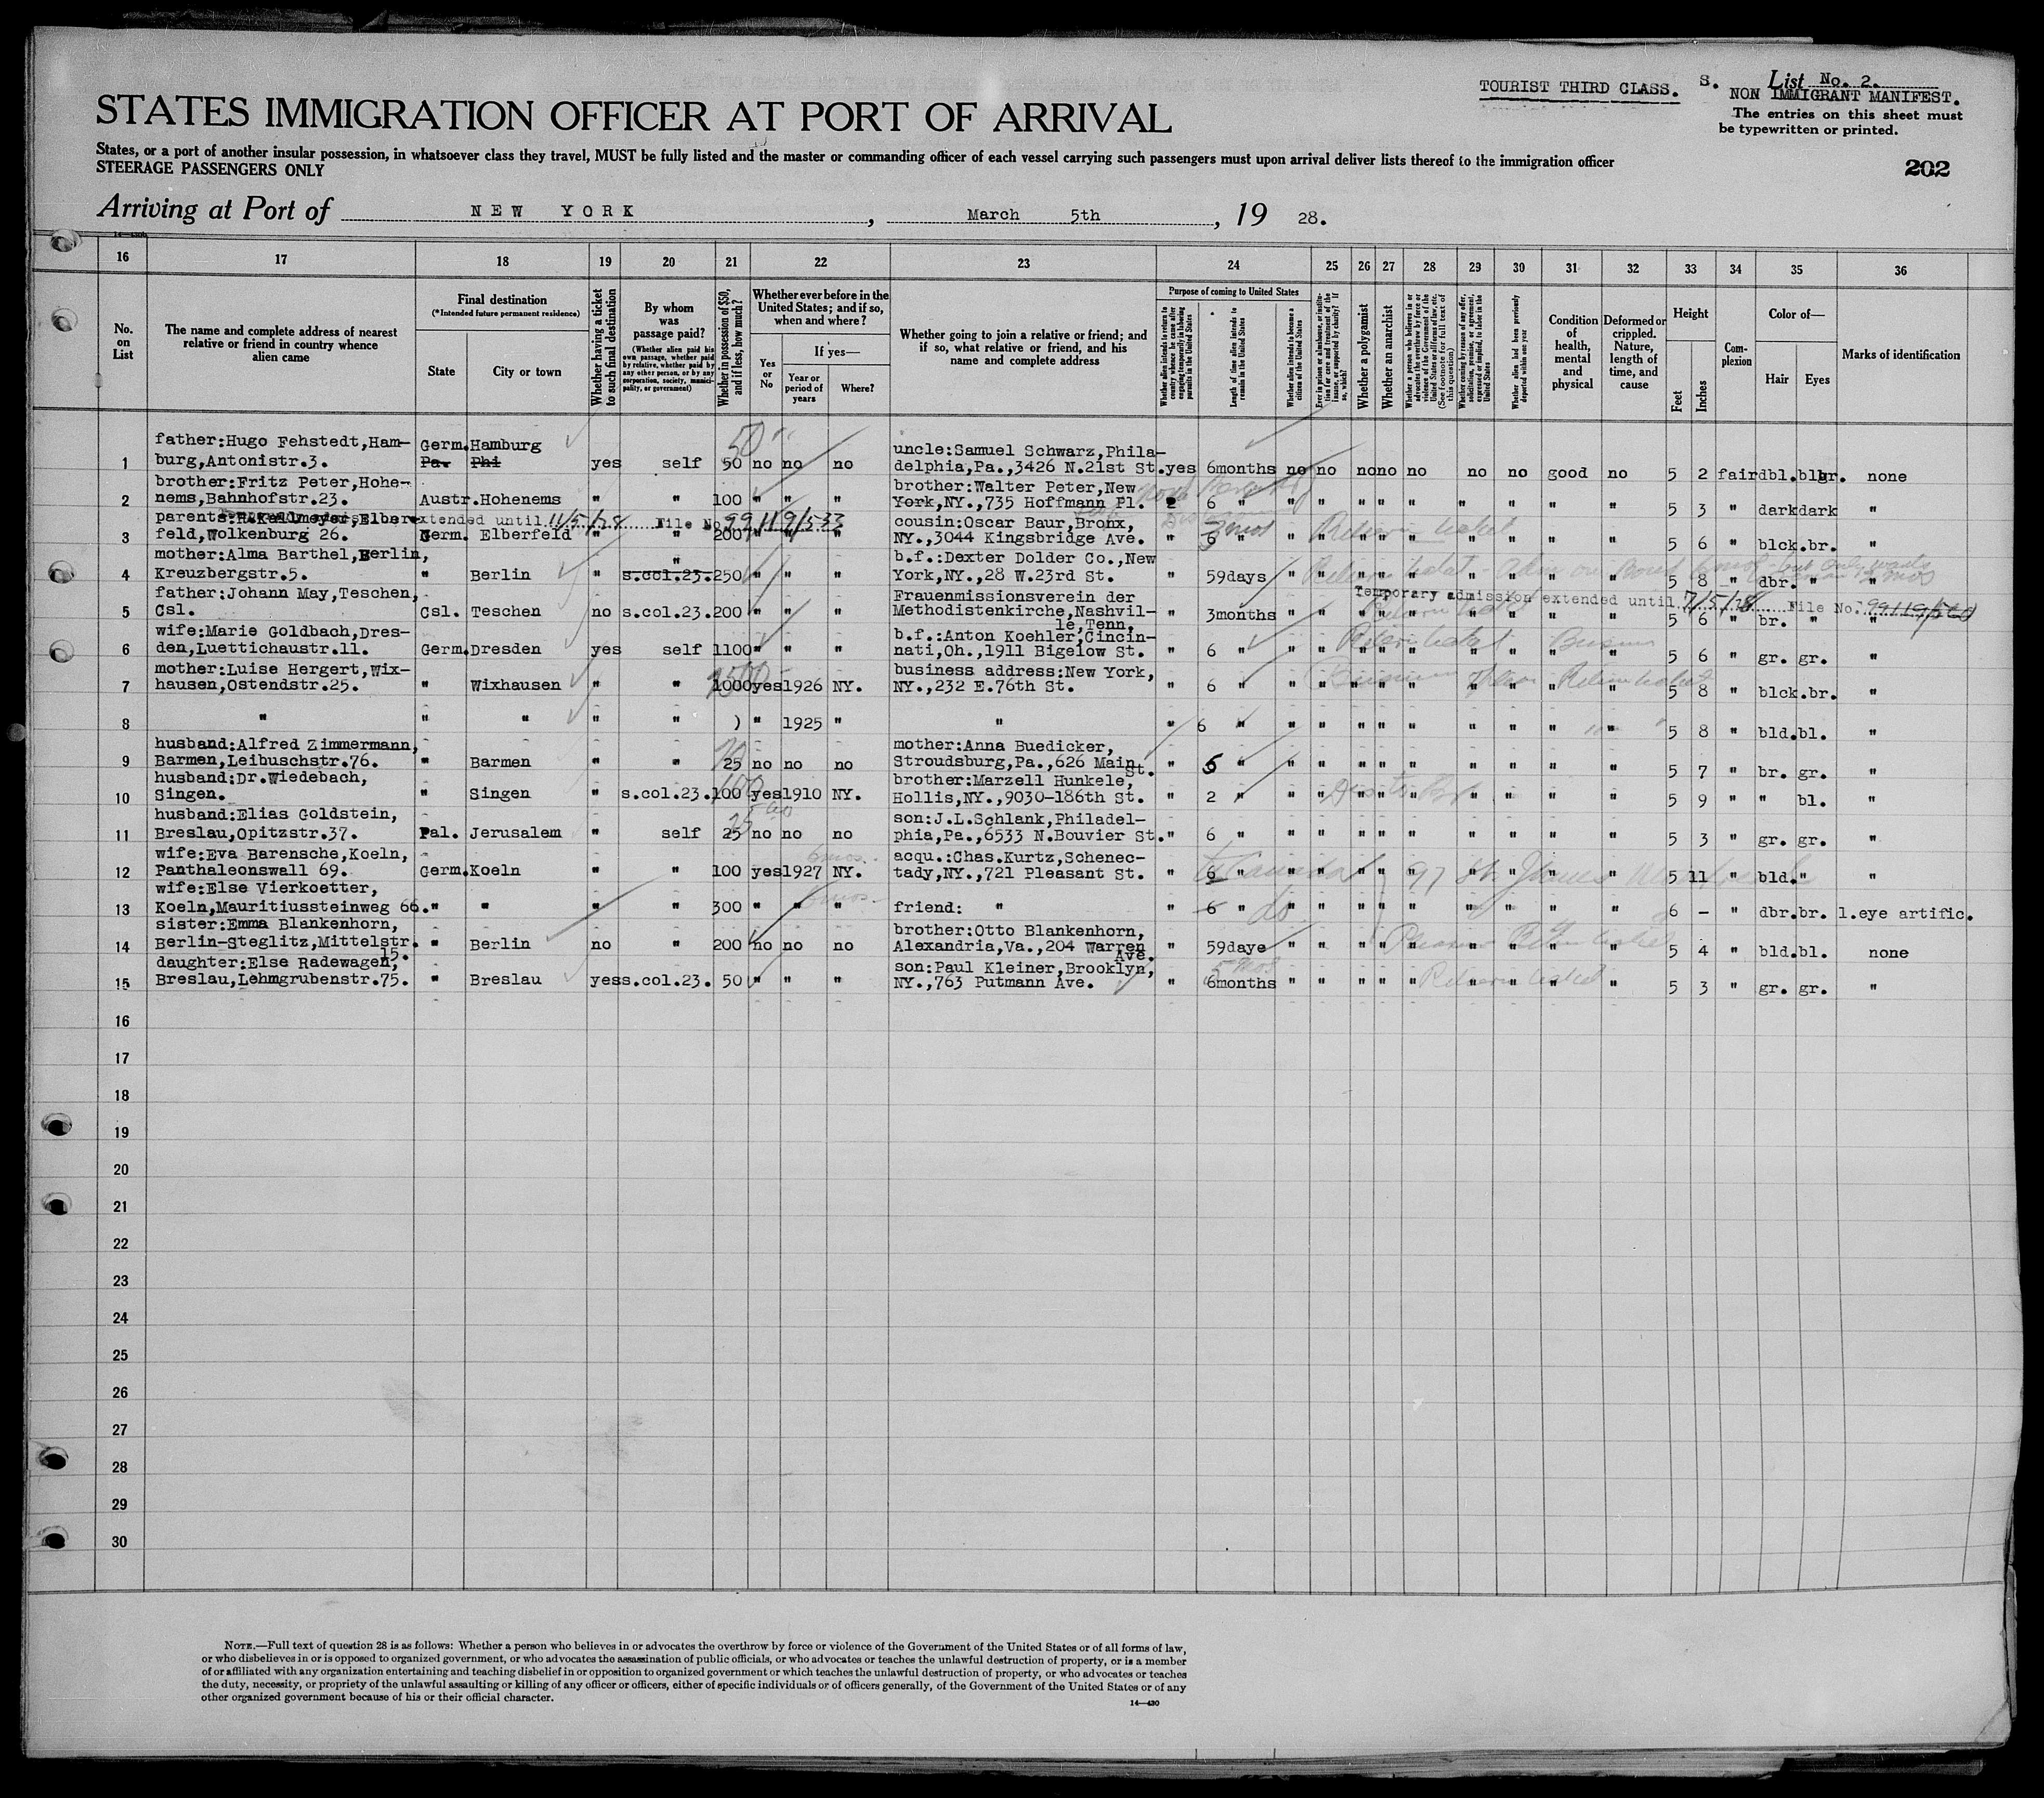 TOURIST THIRD CLASS.
S.
List No. 2.
NON IMMIGRANT MANIFEST.
The entries on this sheet must
be typewritten or printed.
STATES IMMIGRATION OFFICER AT PORT OF ARRIVAL
States, or a port of another insular possession, in whatsoever class they travel, MUST be fully listed and the master or commanding officer of each vessel carrying such passengers must upon arrival deliver lists thereof to the immigration officer
STEERAGE PASSENGERS ONLY
202
Arriving at Port of NEW YORK, March 5th, 19 28.
16 17 18 19 20 21 22 23 24 25 26 27 28 29 30 31 32 33 34 35 36
No. on List
The name and complete address of nearest relative or friend in country whence alien came
Final destination
(*Intended future permanent residence)
State City or town
Whether having a ticket to such final destination
By whom was passage paid?
(Whether alien paid his own passage, whether paid by relative, whether paid by any other person, or by any corporation, society, municipality, or government)
Whether in possession of $50, and if less, how much?
Whether ever before in the United States; and if so, when and where?
Yes or No
If yes—
Year or period of years
Where?
Whether going to join a relative or friend; and if so, what relative or friend, and his name and complete address
Purpose of coming to United States
Whether alien intends to return to country whence he came after engaging temporarily in laboring pursuits in the United States
Length of time alien intends to remain in the United States
Whether alien intends to become a citizen of the United States
Ever in prison or almshouse, or institution for care and treatment of the insane, or supported by charity? If so, which?
Whether a polygamist
Whether an anarchist
Whether a person who believes in or advocates the overthrow by force or violence of the Government of the United States or all forms of law, etc. (See footnote for full text of this question)
Whether coming by reason of any offer, solicitation, promise, or agreement, expressed or implied, to labor in the United States
Whether alien had been previously deported within one year
Condition of health, mental and physical
Deformed or crippled. Nature, length of time, and cause
Height
Feet Inches
Complexion
Color of—
Hair Eyes
Marks of identification
father:Hugo Fehstedt,Ham- Germ.Hamburg 50 uncle:Samuel Schwarz,Phila-
1 burg,Antonistr.3. Pa. Phi yes self 50 no no no delphia,Pa.,3426 N.21st St. yes 6months no no no no no no no good no 5 2 fair dbl. br. none
brother:Fritz Peter,Hohe- brother:Walter Peter,New
2 nems,Bahnhofstr.23. Austr.Hohenems " " 100 " " " York,NY.,735 Hoffmann Pl. 6 " " " " " " " " " " 5 3 " dark dark "
extended until 11/5/28 File No. 99119/533
parents: Kellmeyer,Elber- cousin:Oscar Baur,Bronx, 3 mos
3 feld,Wolkenburg 26. Germ. Elberfeld " " 200 " " " NY.,3044 Kingsbridge Ave. " 6 " " " " " " " " " " 5 6 " blck.br. "
mother:Alma Barthel,Berlin, " b.f.:Dexter Dolder Co.,New
4 Kreuzbergstr.5. " Berlin " s.col.23. 250 " " " York,NY.,28 W.23rd St. " 59days " " " " " " " " " 5 8 " dbr. " "
father:Johann May,Teschen, Frauenmissionsverein der
Temporary admission extended until 7/5/28 File No. 99119/560
5 Csl. Csl. Teschen no s.col.23. 200 " " " Methodistenkirche,Nashvil- " 3months " " 5 6 " br. " "
le,Tenn.
wife:Marie Goldbach,Dres- b.f.:Anton Koehler,Cincin-
6 den,Luettichaustr.11. Germ.Dresden yes self 1100 " " " nati,Oh.,1911 Bigelow St. " 6 " " " " " " " " " " 5 6 " gr. gr. "
mother:Luise Hergert,Wix- business address:New York,
7 hausen,Ostendstr.25. " Wixhausen " " 1000 yes 1926 NY. NY.,232 E.76th St. " 6 " " " " " " " " " " 5 8 " blck.br. "
8 " " " " " ) " 1925 " " " 6 " " " " " " " " " " 5 8 " bld.bl. "
husband:Alfred Zimmermann, mother:Anna Buedicker,
9 Barmen,Leibuschstr.76. " Barmen " " 25 no no no Stroudsburg,Pa.,626 Main St. " 5 " " " " " " " " " " 5 7 " br. gr. "
husband:Dr.Wiedebach, brother:Marzell Hunkele,
10 Singen. " Singen " s.col.23. 100 yes 1910 NY. Hollis,NY.,9030-186th St. " 2 " " " " " " " " " " 5 9 " " bl. "
husband:Elias Goldstein, son:J.L.Schlank,Philadel-
11 Breslau,Opitzstr.37. Pal. Jerusalem " self 25 no no no phia,Pa.,6533 N.Bouvier St. " 6 " " " " " " " " " " 5 3 " gr. gr. "
wife:Eva Barensche,Koeln, acqu.:Chas.Kurtz,Schenec-
12 Panthaleonswall 69. Germ.Koeln " " 100 yes 1927 NY. tady,NY.,721 Pleasant St. " 6 " " " " " " " " " " 5 11 " bld. " "
wife:Else Vierkoetter,
13 Koeln,Mauritiussteinweg 66. " " " " 300 " " " friend: " " 6 " do " " " " " " " " " 6 - " dbr.br. l.eye artific.
sister:Emma Blankenhorn, brother:Otto Blankenhorn,
14 Berlin-Steglitz,Mittelstr. 15. " Berlin no " 200 no no no Alexandria,Va.,204 Warren Ave. " 59daye " " " " " " " " " 5 4 " bld.bl. none
daughter:Else Radewagen, son:Paul Kleiner,Brooklyn, 5 mos
15 Breslau,Lehmgrubenstr.75. " Breslau yes s.col.23. 50 " " " NY.,763 Putmann Ave. " 6months " " " " " " " " " 5 3 " gr. gr. "
16
17
18
19
20
21
22
23
24
25
26
27
28
29
30
NOTE.—Full text of question 28 is as follows: Whether a person who believes in or advocates the overthrow by force or violence of the Government of the United States or of all forms of law,
or who disbelieves in or is opposed to organized government, or who advocates the assassination of public officials, or who advocates or teaches the unlawful destruction of property, or is a member
of or affiliated with any organization entertaining and teaching disbelief in or opposition to organized government or which teaches the unlawful destruction of property, or who advocates or teaches
the duty, necessity, or propriety of the unlawful assaulting or killing of any officer or officers, either of specific individuals or of officers generally, of the Government of the United States or of any
other organized government because of his or their official character.
14—430